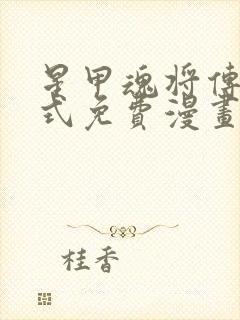 星甲魂将傳
式免費漫畫
桂香